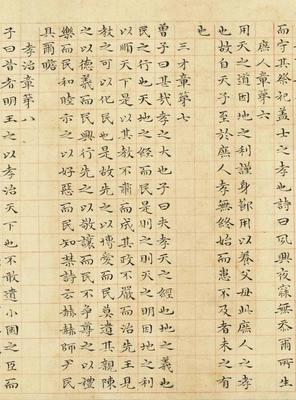 而守其祭祀蓋士之孝也詩曰夙興夜寐無忝爾所生
庶人章第六
用天之道因地之利謹身節用以養父母此庶人之孝
也故自天子至於庶人孝無終始而患不及者未之有
也
三才章第七
曾子曰甚哉孝之大也子曰夫孝天之經也地之義也
民之行也天地之經而民是則之則天之明因地之利
以順天下是以其教不肅而成其政不嚴而治先王見
教之可以化民也是故先之以博愛而民莫遺其親陳
之以德義而民興行先之以敬讓而民不爭導之以禮
樂而民和睦示之以好惡而民知禁詩云赫赫師尹民
具爾瞻
孝治章第八
子曰昔者明王之以孝治天下也不敢遺小國之臣而